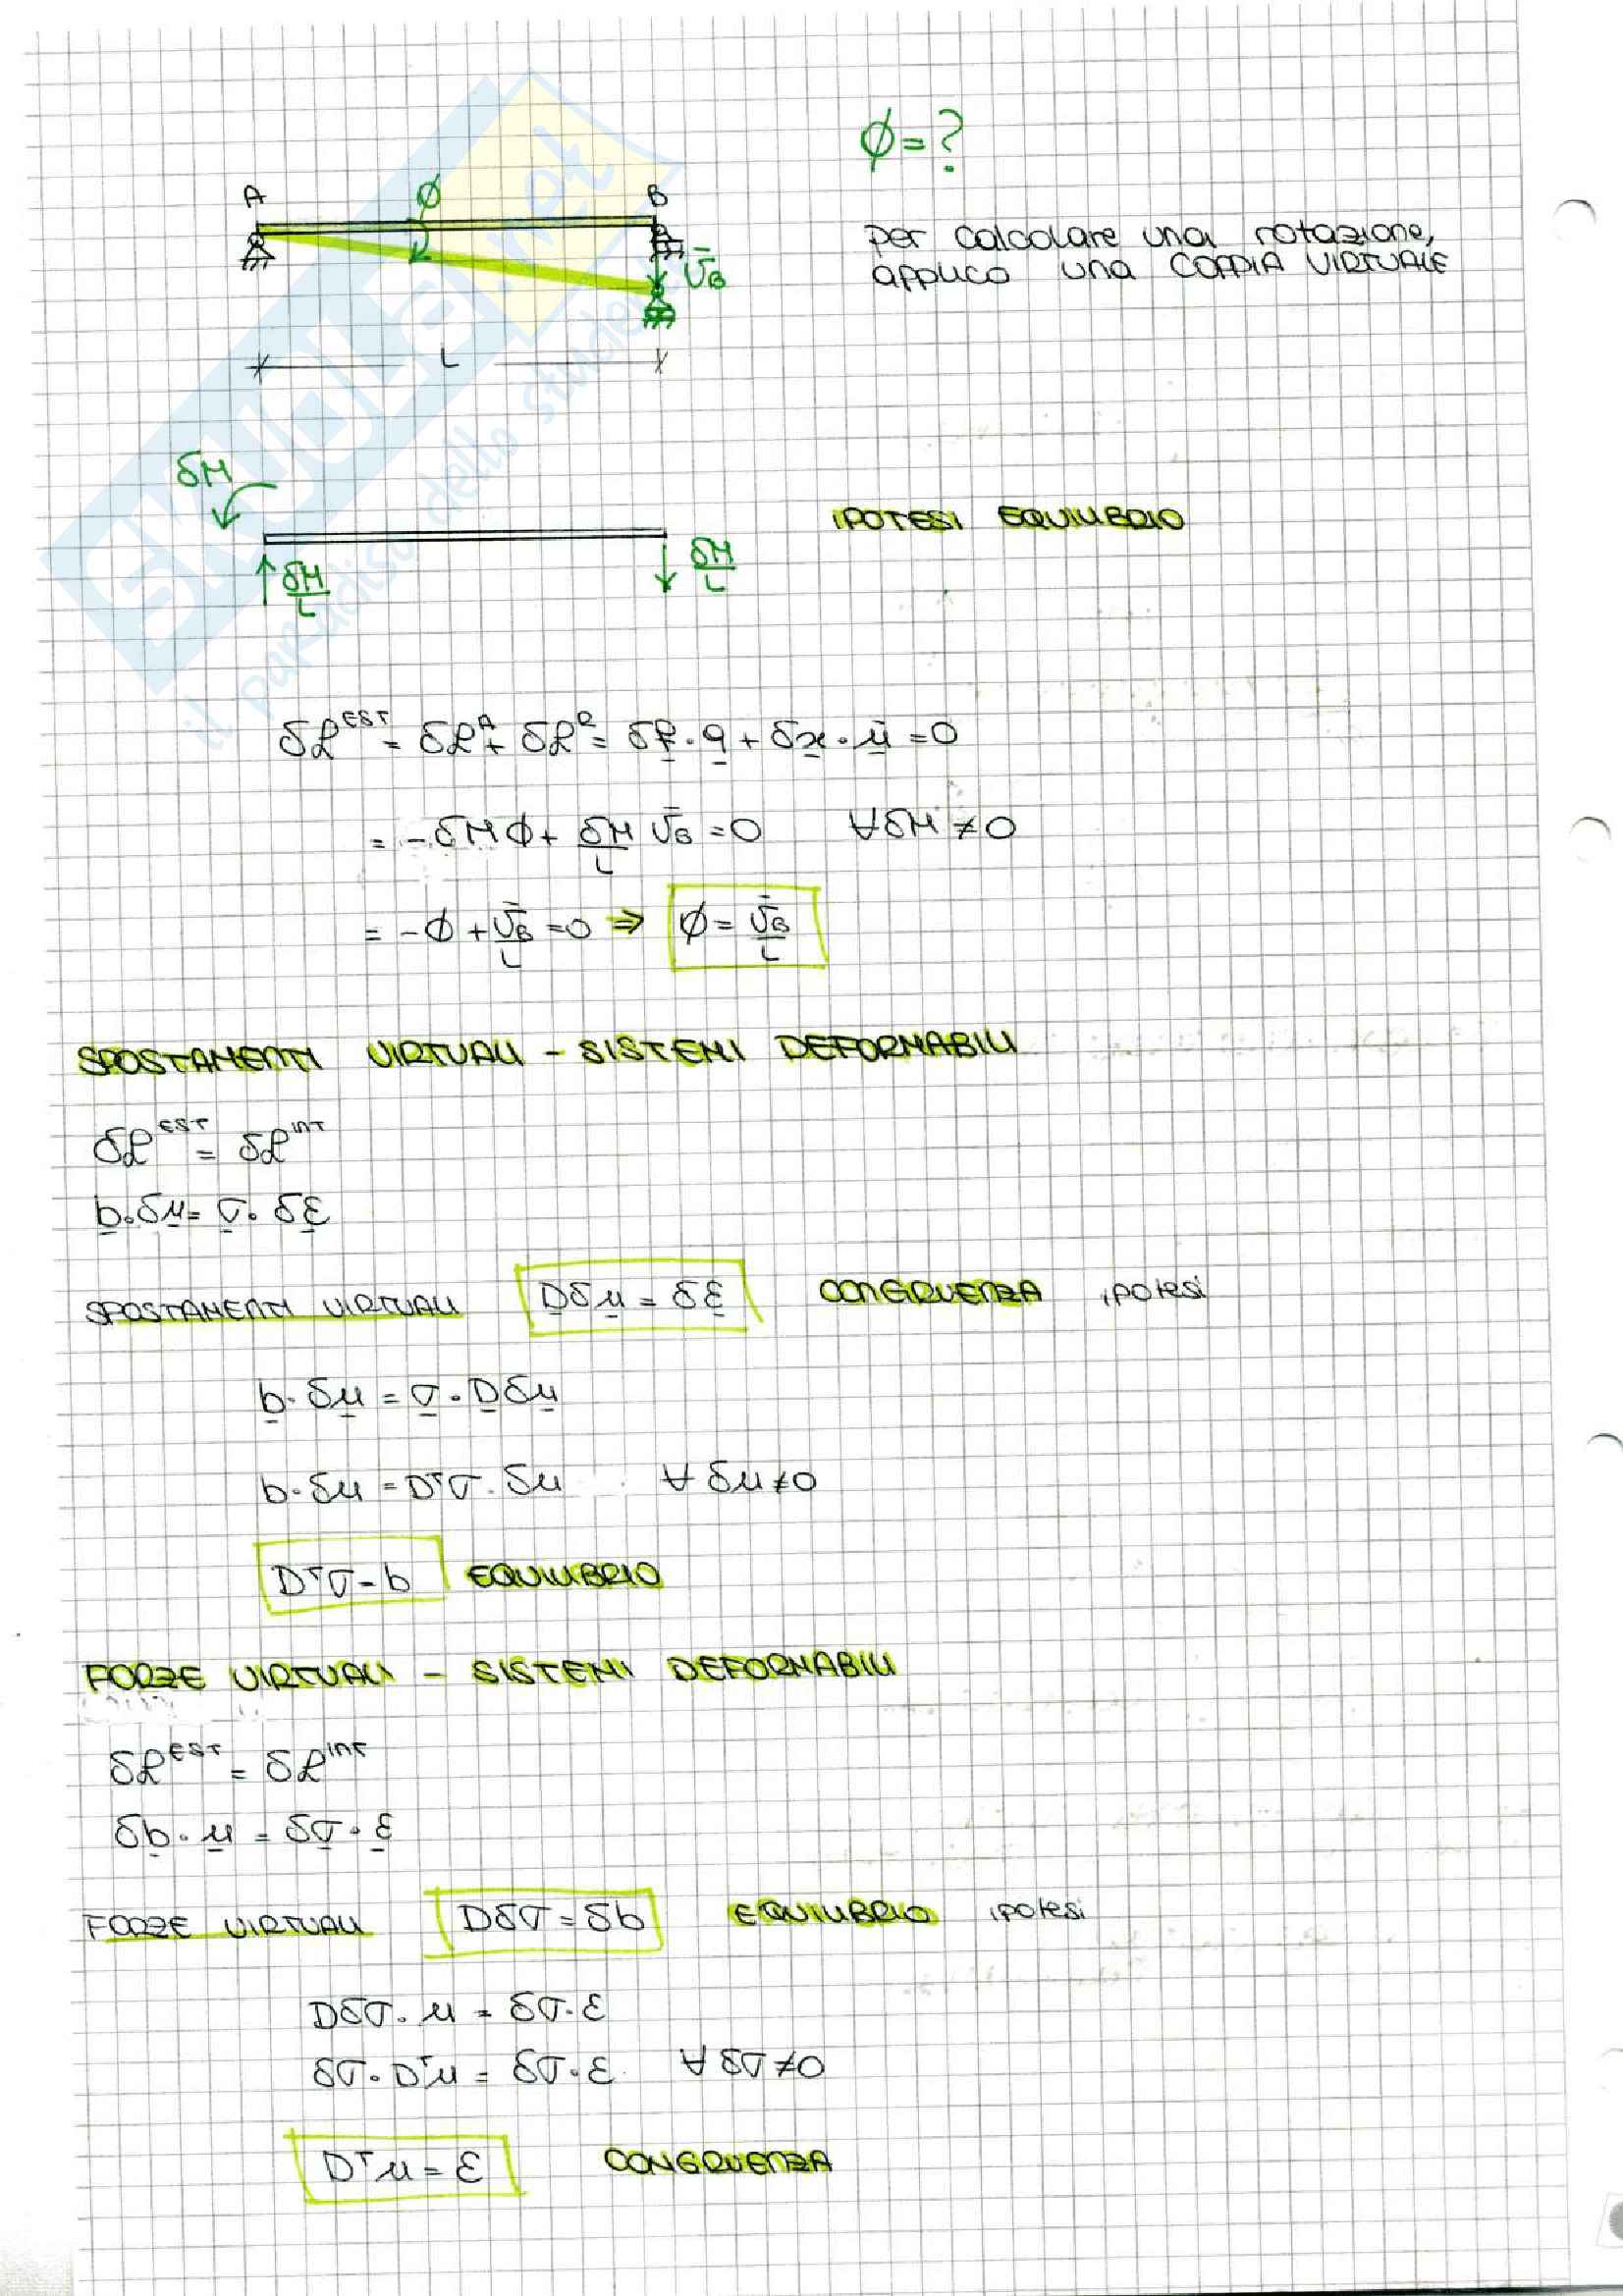 ϕ = ?
A ϕ B
per calcolare una rotazione,
applico una COPPIA VIRTUALE
v̄B
L
δM
IPOTESI EQUILIBRIO
δM/L δM/L
δL^EST = δL^A + δL^R = δf · q + δx · ū = 0
= -δMϕ + δM/L v̄B = 0 ∀δM ≠ 0
= -ϕ + v̄B/L = 0 ⇒ ϕ = v̄B/L
SPOSTAMENTI VIRTUALI - SISTEMI DEFORMABILI
δL^EST = δL^INT
b · δu = σ · δε
SPOSTAMENTI VIRTUALI Dδu = δε CONGRUENZA ipotesi
b · δu = σ · Dδu
b · δu = DᵀƠσ · δu ∀ δu ≠ 0
Dᵀσ = b EQUILIBRIO
FORZE VIRTUALI - SISTEMI DEFORMABILI
δL^EST = δL^INT
δb · u = δσ · ε
FORZE VIRTUALI Dδσ = δb EQUILIBRIO ipotesi
Dδσ · u = δσ · ε
δσ · Dᵀu = δσ · ε ∀ δσ ≠ 0
Dᵀu = ε CONGRUENZA
skuola.net
il paradiso dello studente